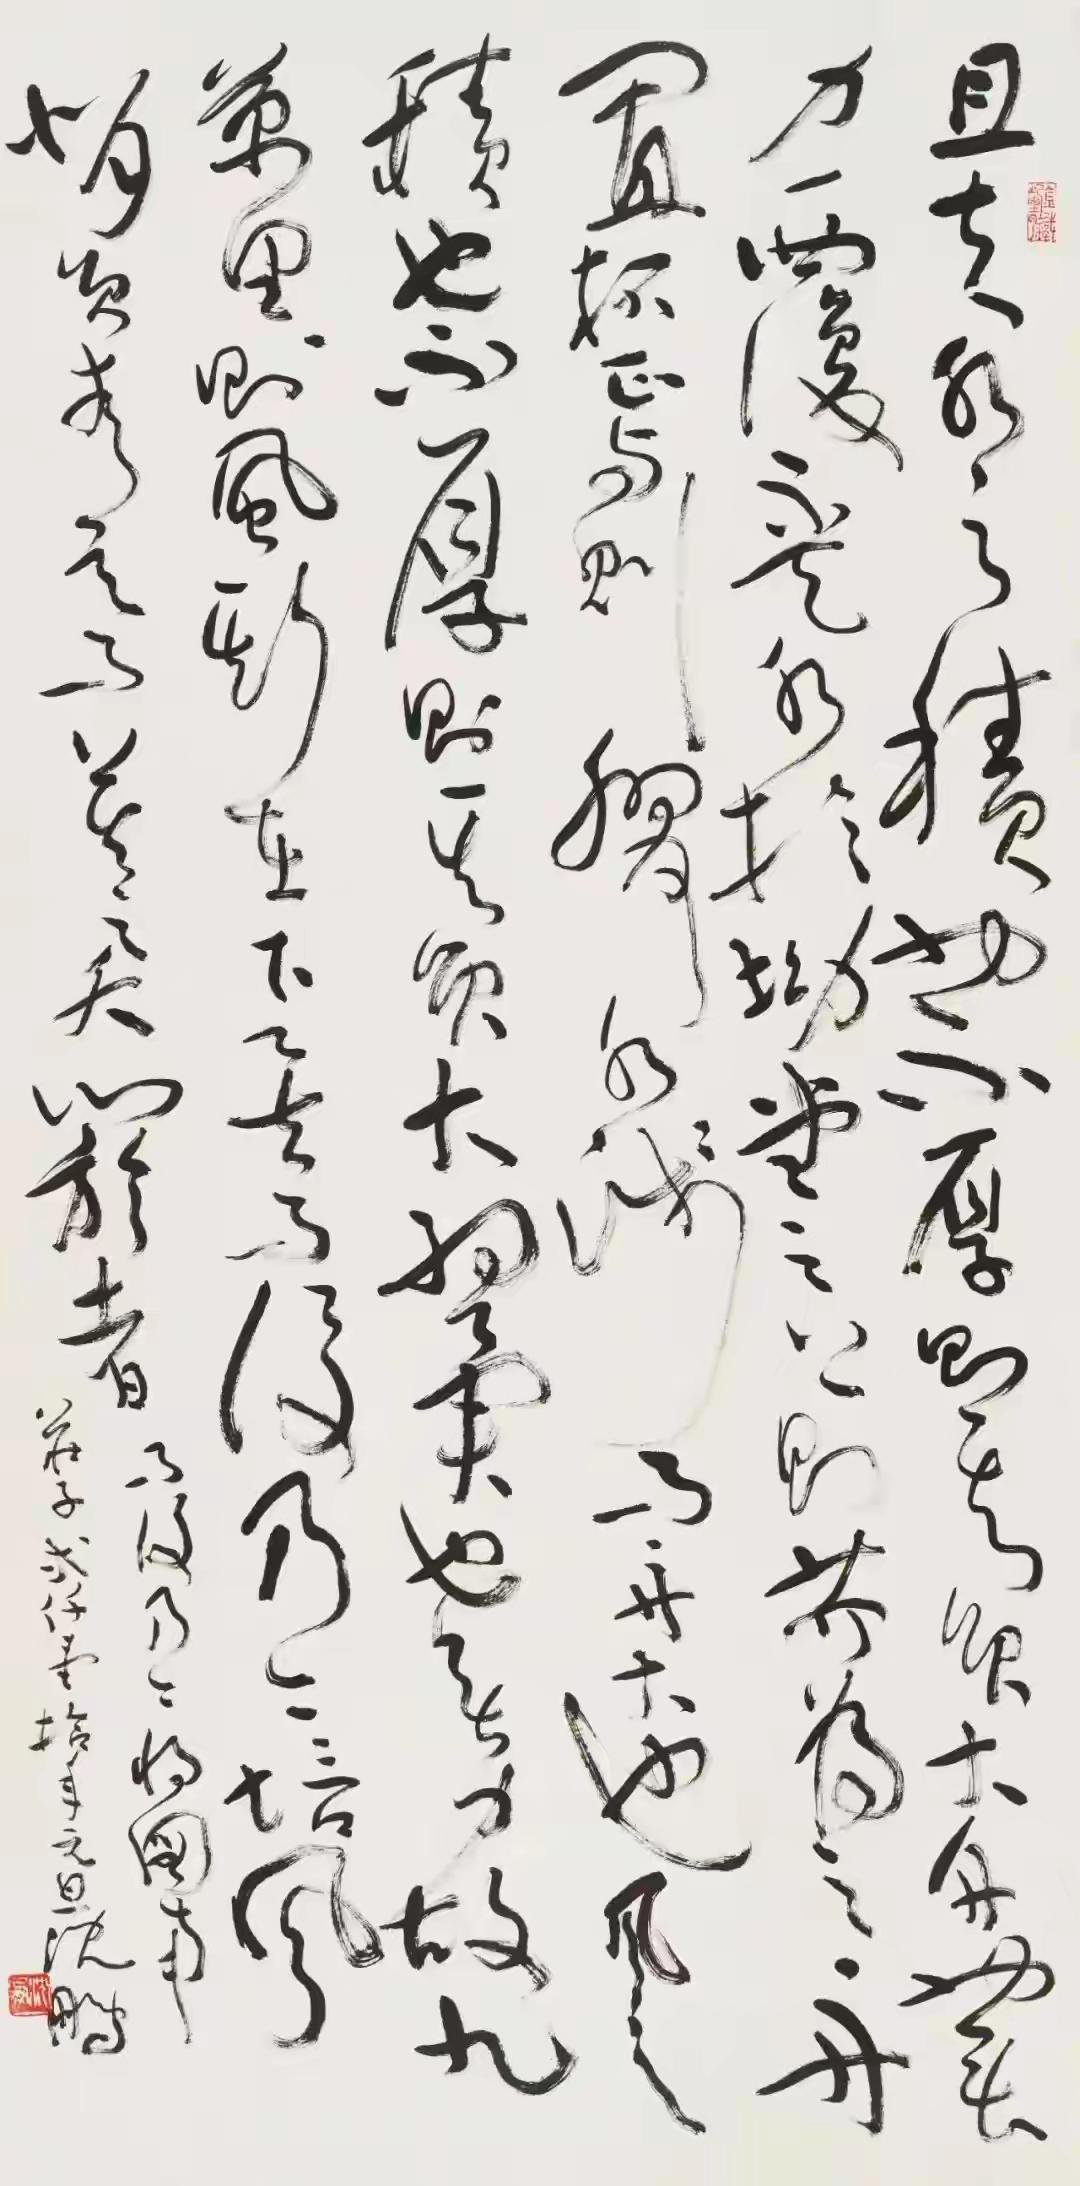 且夫水之積也不厚則其負大舟也無
力覆盃水於坳堂之上則芥為之舟
置杯焉則膠水淺而舟大也風之
積也不厚則其負大翼也無力故九
萬里則風斯在下矣而後乃今培風
背負青天而莫之夭閼者
而後乃今將圖南
莊子弍仟零拾年元旦沈鵬